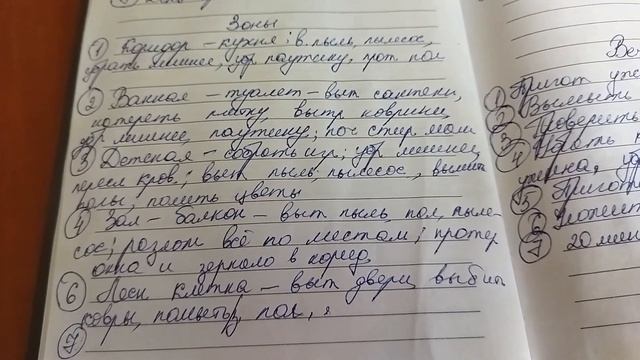 Зоны
① Коридор – кухня: в. пыль, пылесос,
убрать лишнее, убр паутину, прот пол
② Ванная – туалет – выт сантехн,
натереть плитку, вытр коврики,
убр лишнее, паутину; поч стир маш
③ Детская – собрать игр; убр лишнее,
пересл кров.; выт пыль, пылесос, вымыть
полы, полить цветы
④ Зал – балкон – выт пыль, пол, пыле-
сос; разлож всё по местам; протер
окна и зеркало в корид.
⑥ Лесн клетка – выт двери, выбить
ковры, помыть пол,
⑦
① Пригот
② Вымыть
③ Проверить
④
⑤ Пригот
⑥
⑦ 20 мин